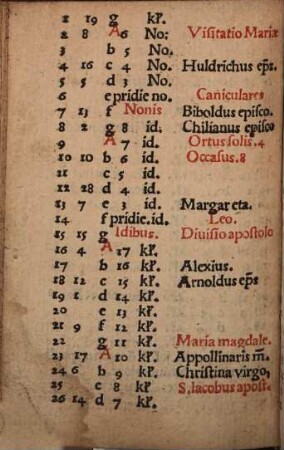 1 19 g kł.
2 8 A 6 No: Visitatio Mariæ
3 b 5 No.
4 16 c 4 No. Huldrichus ep̄s.
5 5 d 3 No.
6 e pridie no. Caniculares
7 13 f Nonis Biboldus episco.
8 2 g 8 id. Chilianus episco
9 A 7 id. Ortus solis. 4
10 10 b 6 id. Occasus. 8
11 c 5 id.
12 28 d 4 id.
13 7 e 3 id. Margareta.
14 f pridie. id. Leo.
15 15 g Idibus. Diuisio apostolo
16 4 A 17 kł.
17 b 16 kł. Alexius.
18 12 c 15 kł. Arnoldus ep̄s
19 1 d 14 kł.
20 e 13 kł.
21 9 f 12 kł.
22 g 11 kł. Maria magdale.
23 17 A 10 kł. Appollinaris m̄.
24 6 b 9 kł. Christina virgo,
25 c 8 kł. S. Iacobus apost.
26 14 d 7 kł.